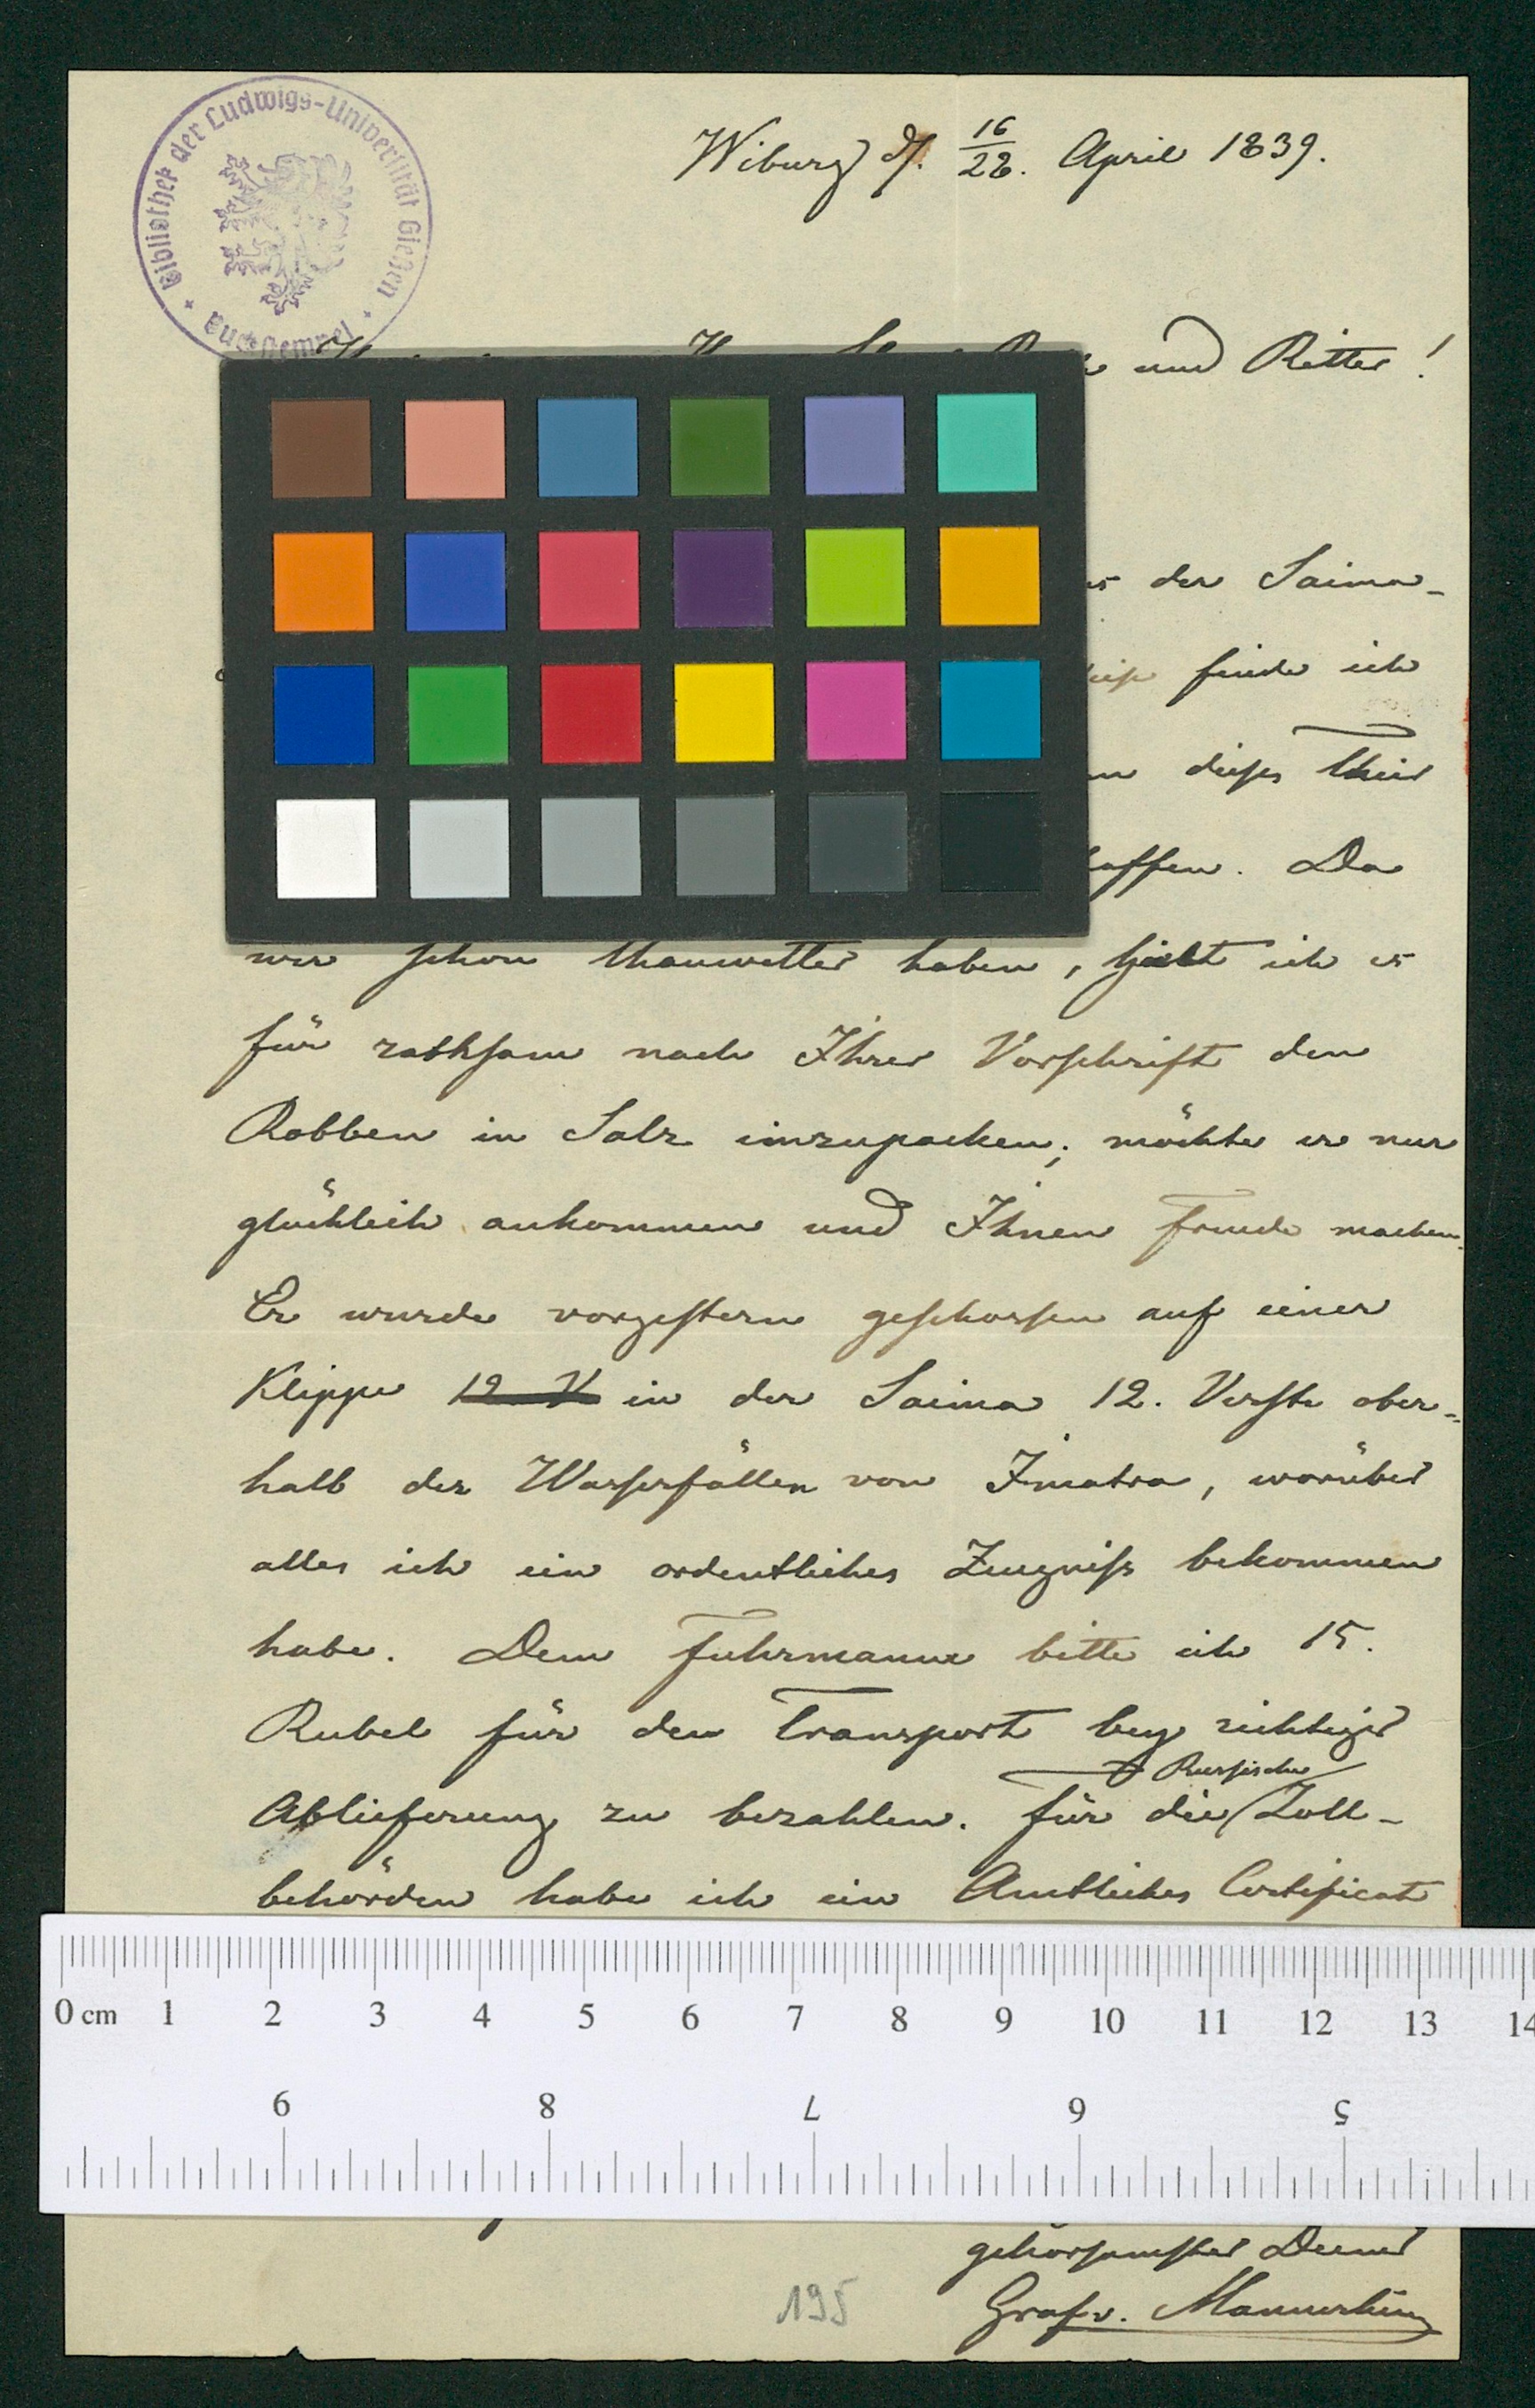 Bibliothek der Ludwigs-Universität Gießen
Wiburg d. 16/28. April 1839.
und Ritter!
der Saima-
finde ich
dieses Thier
Da
wir schon Thauwetter haben, hielt ich es
für rathsam nach Ihrer Vorschrift den
Robben in Salz einzupacken; möchte er nur
glücklich ankommen und Ihnen Freude machen.
Er wurde vorgestern geschossen auf einer
Klippe 12 V in der Saima 12. Werste ober-
halb der Wasserfällen von Imatra, worüber
alles ich ein ordentliches Zeugniss bekommen
habe. Dem Fuhrmanne bitte ich 15.
Rubel für den Transport bey richtiger
Russische
Ablieferung zu bezahlen. Für die Zoll-
behörden habe ich ein Amtliches Certificat
0 cm 1 2 3 4 5 6 7 8 9 10 11 12 13 14
9 8 7 6 5
gehorsamster Diener
195
Graf v. Mannerheim